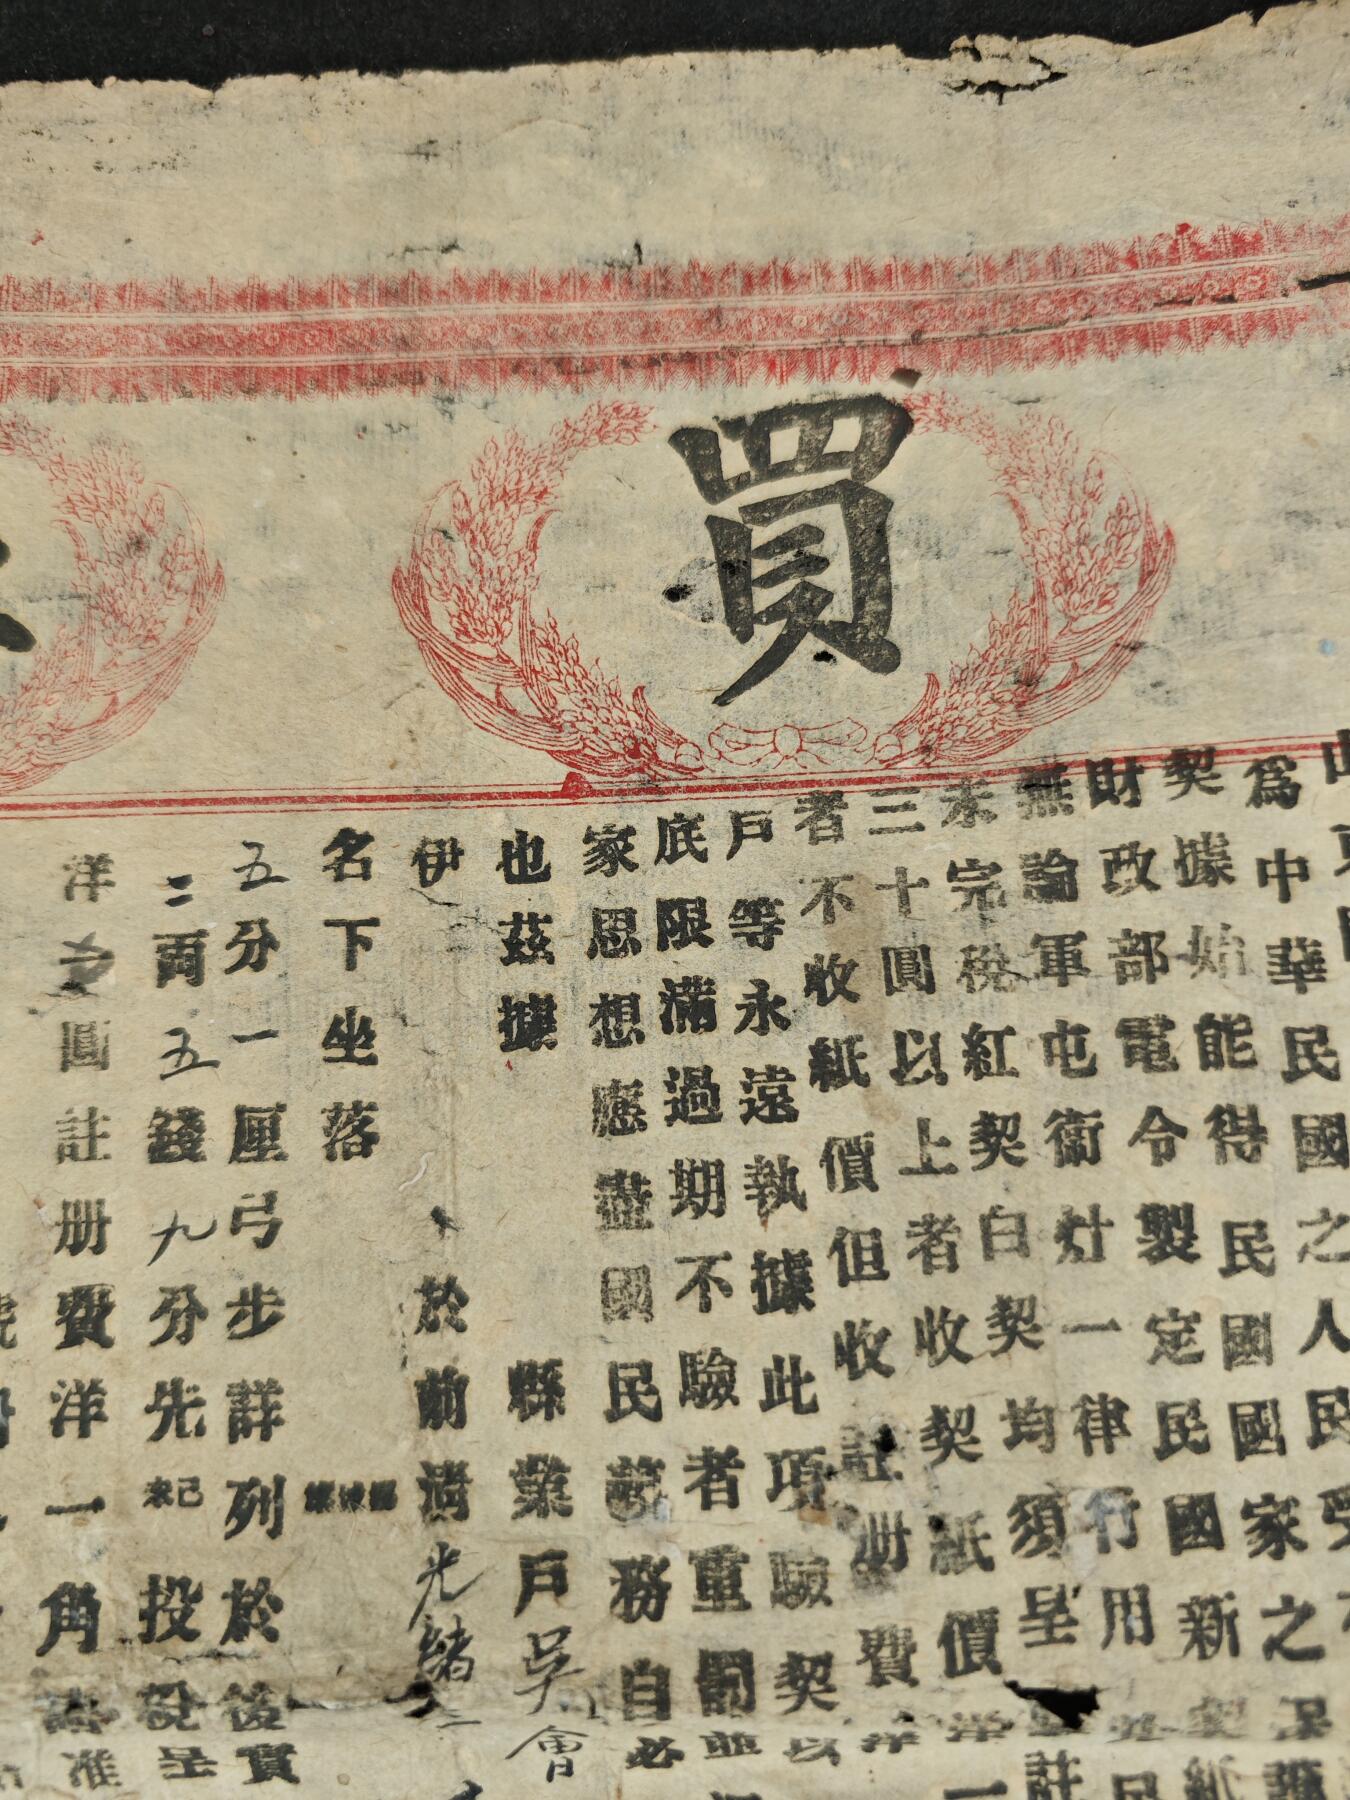 買
爲中華民國之人民
契據始能得民國國家之保護
財政部電令製定民國新契紙
無論軍屯衞灶一律行用
未完稅紅契白契均須呈 註
三十圓以上者收契紙價洋一
者不收紙價但收註册費洋
戶等永遠執據此項驗契以
底限滿過期不驗者重罰並
家思想應盡國民義務自必
也茲據 縣業戶吳會
伊 於前淸光緒三
名下坐落
五分一厘弓步詳列於後實
二兩五錢九分先已未投稅呈
洋 圓註册費洋一角 准